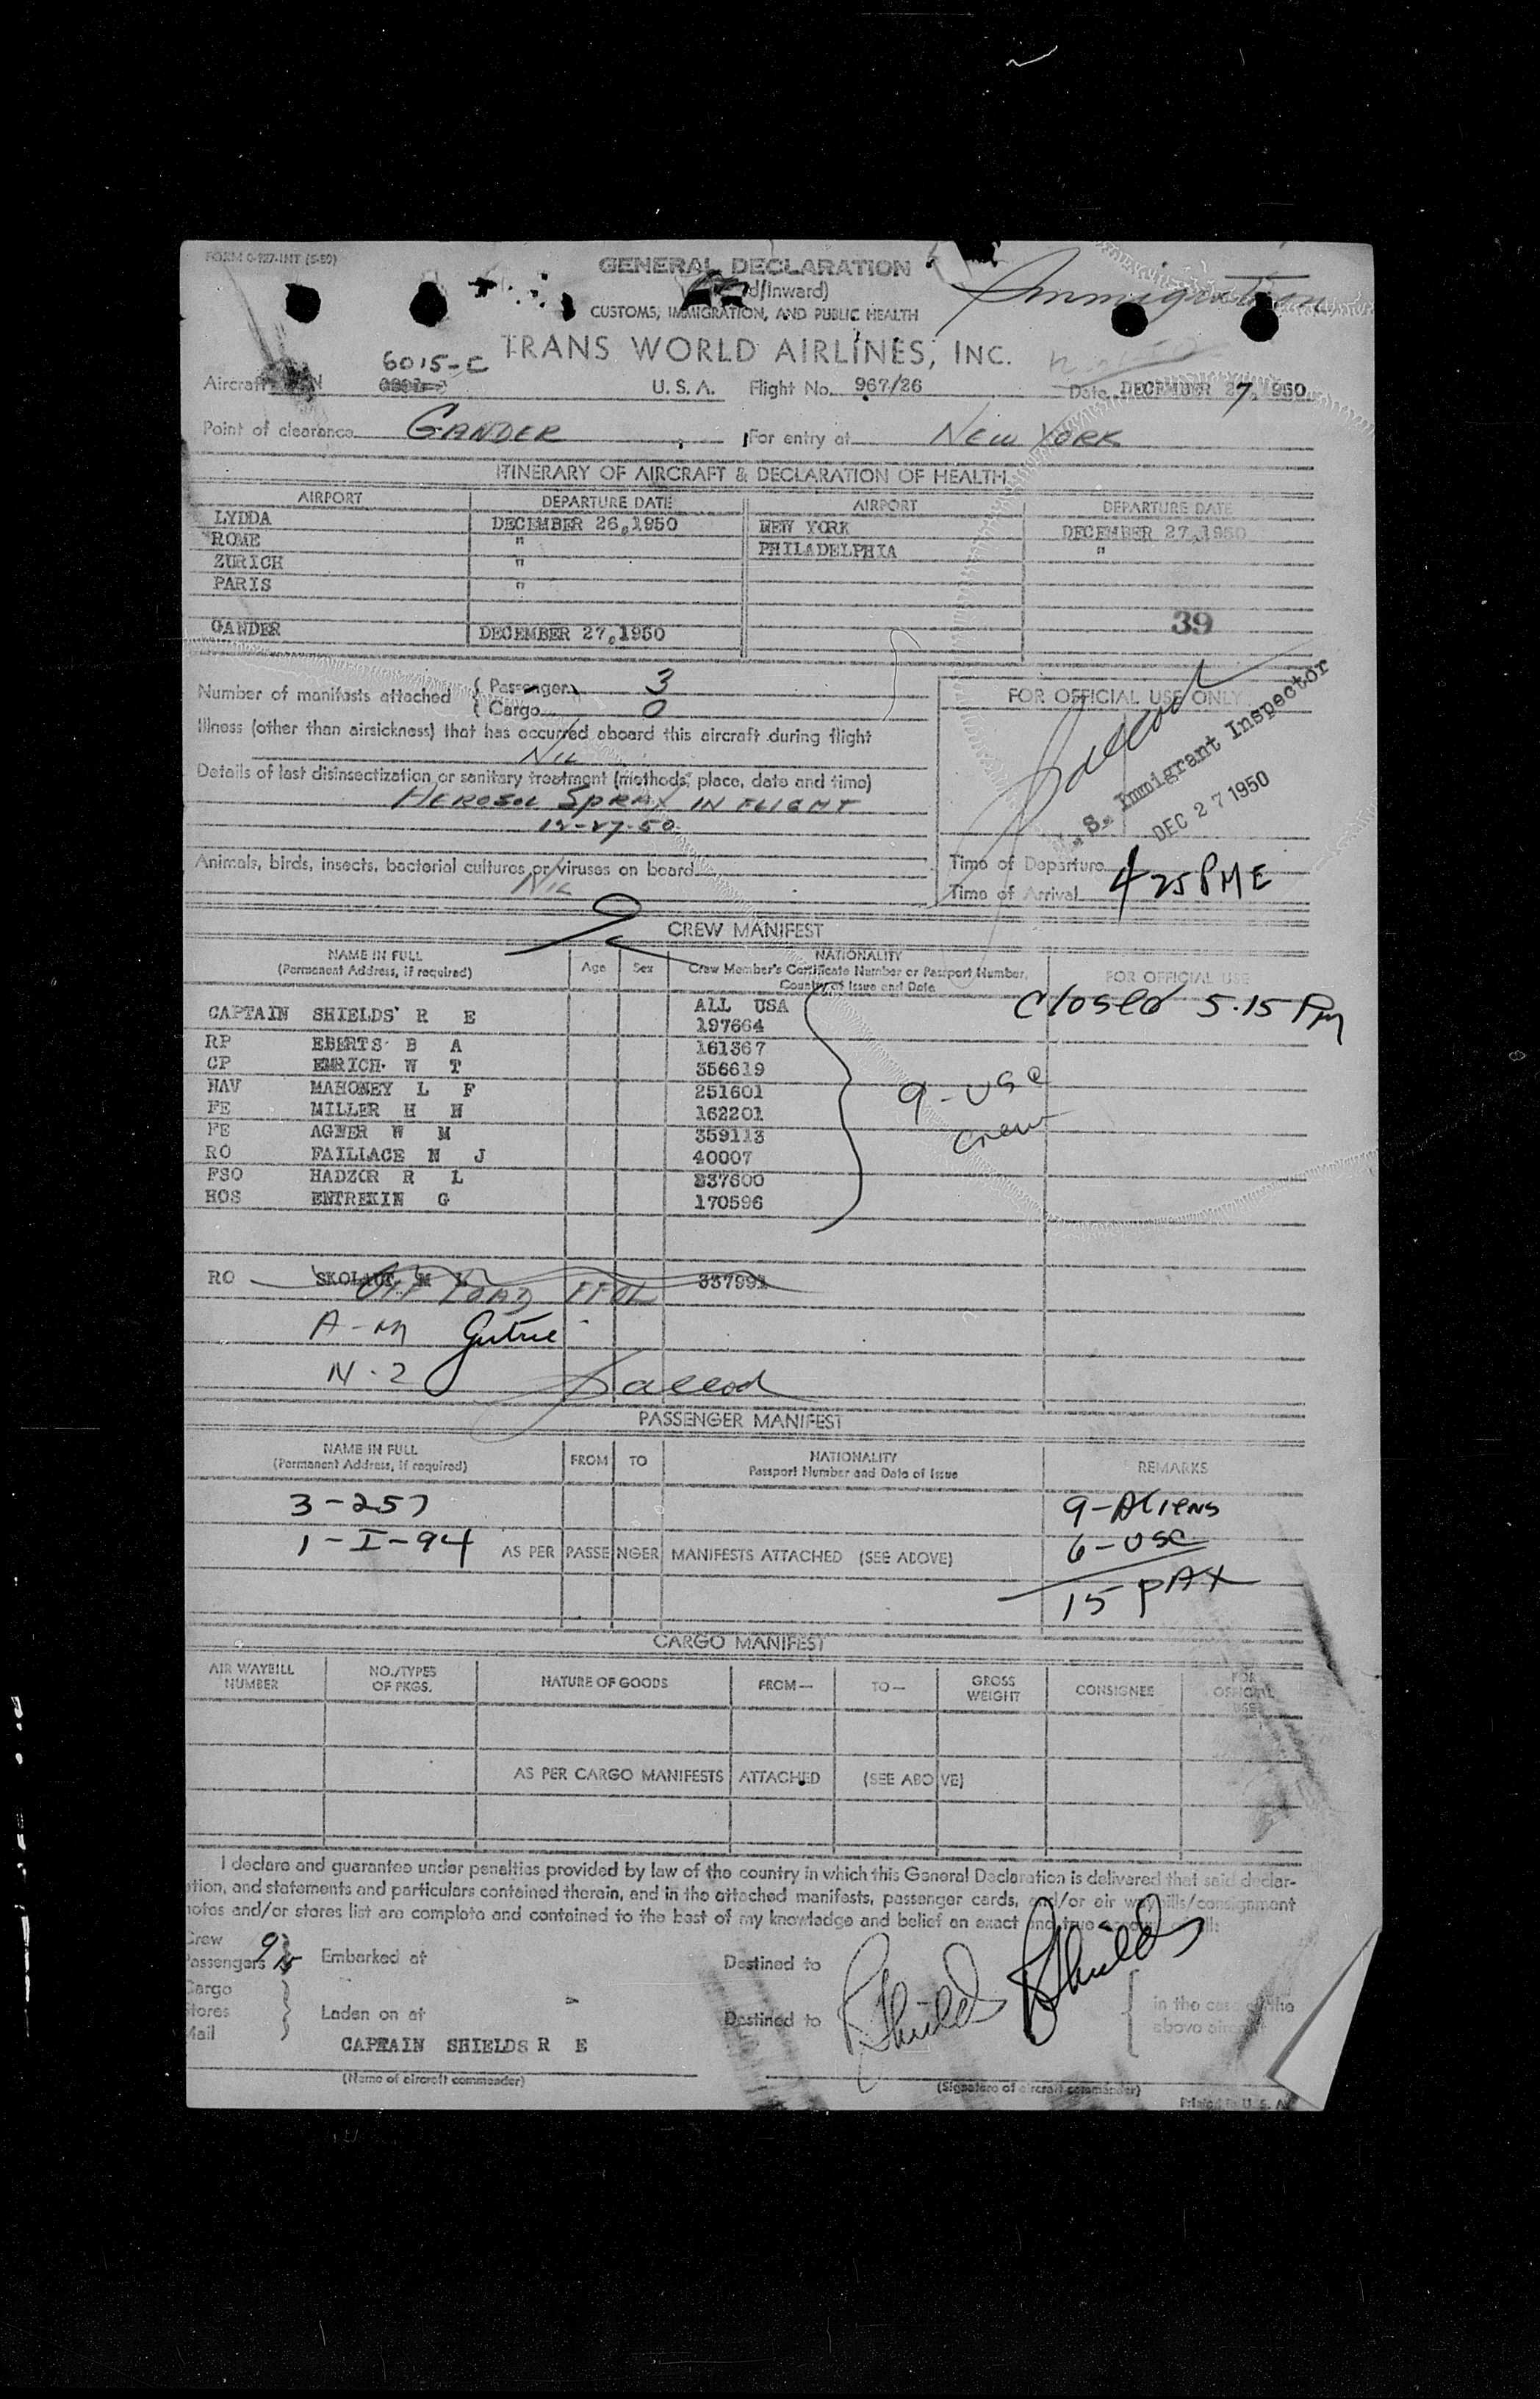 FORM O-927-INT (5-50)
GENERAL DECLARATION
d/Inward)
Immigration
CUSTOMS, IMMIGRATION, AND PUBLIC HEALTH
TRANS WORLD AIRLINES, INC.
6015-C
Aircraft N U. S. A. Flight No. 967/26 Date DECEMBER 27, 1950
Point of clearance GANDER For entry at NEW YORK
ITINERARY OF AIRCRAFT & DECLARATION OF HEALTH
AIRPORT DEPARTURE DATE AIRPORT DEPARTURE DATE
LYDDA DECEMBER 26,1950 NEW YORK DECEMBER 27,1950
ROME " PHILADELPHIA "
ZURICH "
PARIS "
39
GANDER DECEMBER 27,1950
Number of manifests attached { Passenger 3
{ Cargo 0
FOR OFFICIAL USE ONLY
Illness (other than airsickness) that has occurred aboard this aircraft during flight
NIL
U. S. Immigrant Inspector
DEC 27 1950
Details of last disinsectization or sanitary treatment (methods, place, date and time)
AEROSOL SPRAY IN FLIGHT
12-27-50
Animals, birds, insects, bacterial cultures or viruses on board
NIL
Time of Departure
Time of Arrival 425 PME
9
CREW MANIFEST
NAME IN FULL
(Permanent Address, if required) Age Sex NATIONALITY
Crew Member's Certificate Number or Passport Number,
Country of Issue and Date FOR OFFICIAL USE
ALL USA Closed 5.15 Pm
CAPTAIN SHIELDS R E 197664
RP EBERTS B A 161367
CP EMRICH W T 356619
NAV MAHONEY L F 251601
FE MILLER H H 162201
FE AGNER W M 359113
RO FAILLACE N J 40007
FSO HADZOR R L 337600
HOS ENTREKIN G 170596
9-USC
crew
RO SKOLAUT M L 337991
OFF LOAD
A-M Gutrie
N-2
PASSENGER MANIFEST
NAME IN FULL
(Permanent Address, if required) FROM TO NATIONALITY
Passport Number and Date of Issue REMARKS
3-257 9-Aliens
1-I-94 AS PER PASSENGER MANIFESTS ATTACHED (SEE ABOVE) 6-USC
15-PAX
CARGO MANIFEST
AIR WAYBILL
NUMBER NO./TYPES
OF PKGS. NATURE OF GOODS FROM— TO— GROSS
WEIGHT CONSIGNEE FOR
OFFICIAL
USE
AS PER CARGO MANIFESTS ATTACHED (SEE ABOVE)
I declare and guarantee under penalties provided by law of the country in which this General Declaration is delivered that said declar-
ation, and statements and particulars contained therein, and in the attached manifests, passenger cards, and/or air waybills/consignment
notes and/or stores list are complete and contained to the best of my knowledge and belief an exact and true
Crew 9
Passengers 15 } Embarked at Destined to
Cargo
Stores } Laden on at Destined to in the case of the
Mail above aircraft
RShields RShields
CAPTAIN SHIELDS R E
(Name of aircraft commander) (Signature of aircraft commander)
Printed in U. S. A.